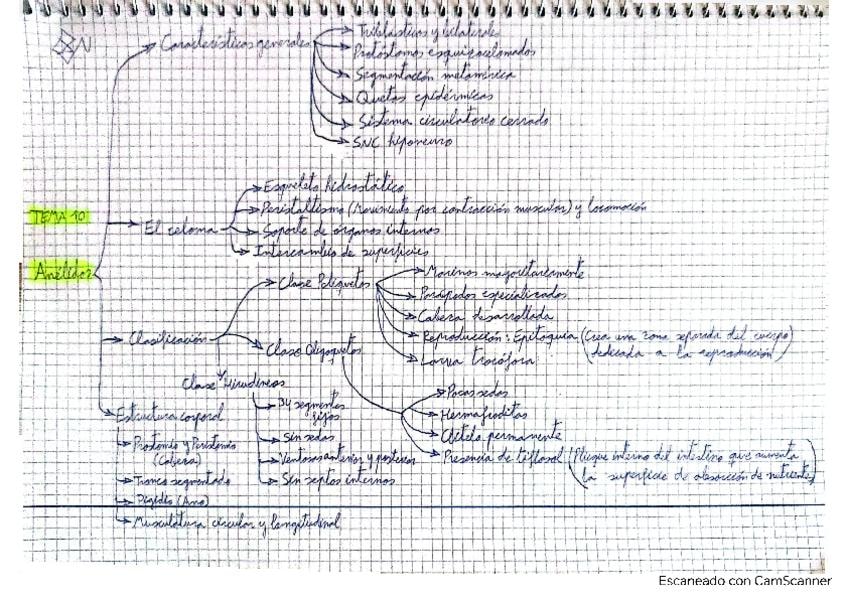 N
Características generales
Triblásticos y bilaterales
Protóstomos esquizocelomados
Segmentación metamérica
Quetas epidérmicas
Sistema circulatorio cerrado
SNC hiponeuro
TEMA 10
Anélidos
El celoma
Esqueleto hidrostático
Peristaltismo (Movimiento por contracción muscular) y locomoción
Soporte de órganos internos
Intercambio de superficies
Clasificación
Clase Poliquetos
Marinos mayoritariamente
Parápodos especializados
Cabeza desarrollada
Reproducción: Epitoquia (Crea una zona separada del cuerpo)
dedicada a la reproducción
Larva trocófora
Clase Oligoquetos
Pocas sedas
Hermafroditas
Clitelo permanente
Presencia de tiflosol (Pliegue interno del intestino que aumenta
la superficie de absorción de nutrientes)
Clase Hirudíneos
34 segmentos
fijos
Sin sedas
Ventosas anterior y posterior
Sin septos internos
Estructura corporal
Prostomio y Peristomio
(Cabeza)
Tronco segmentado
Pigidio (Ano)
Musculatura circular y longitudinal
Escaneado con CamScanner